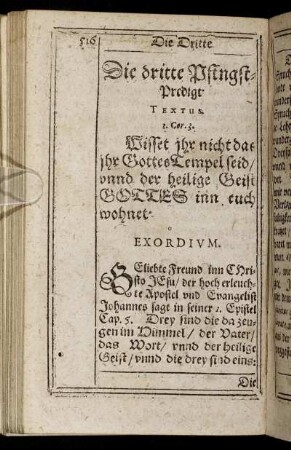 516 Die Dritte
Die dritte Pfingst-
Predigt
TEXTUS.
1. Cor. 3.
Wisset jhr nicht daß
jhr Gottes Tempel seid/
vnnd der heilige Geist
GOTTES inn euch
wohnet.
EXORDIVM.
GEliebte Freund inn CHri-
sto JEsu/ der hoch erleuch-
te Apostel vnd Evangelist
Johannes sagt in seiner 1. Epistel
Cap. 5. Drey sind die da zeu-
gen im Himmel/ der Vater/
das Wort/ vnnd der heilige
Geist/ vnnd die drey sind eins:
Die